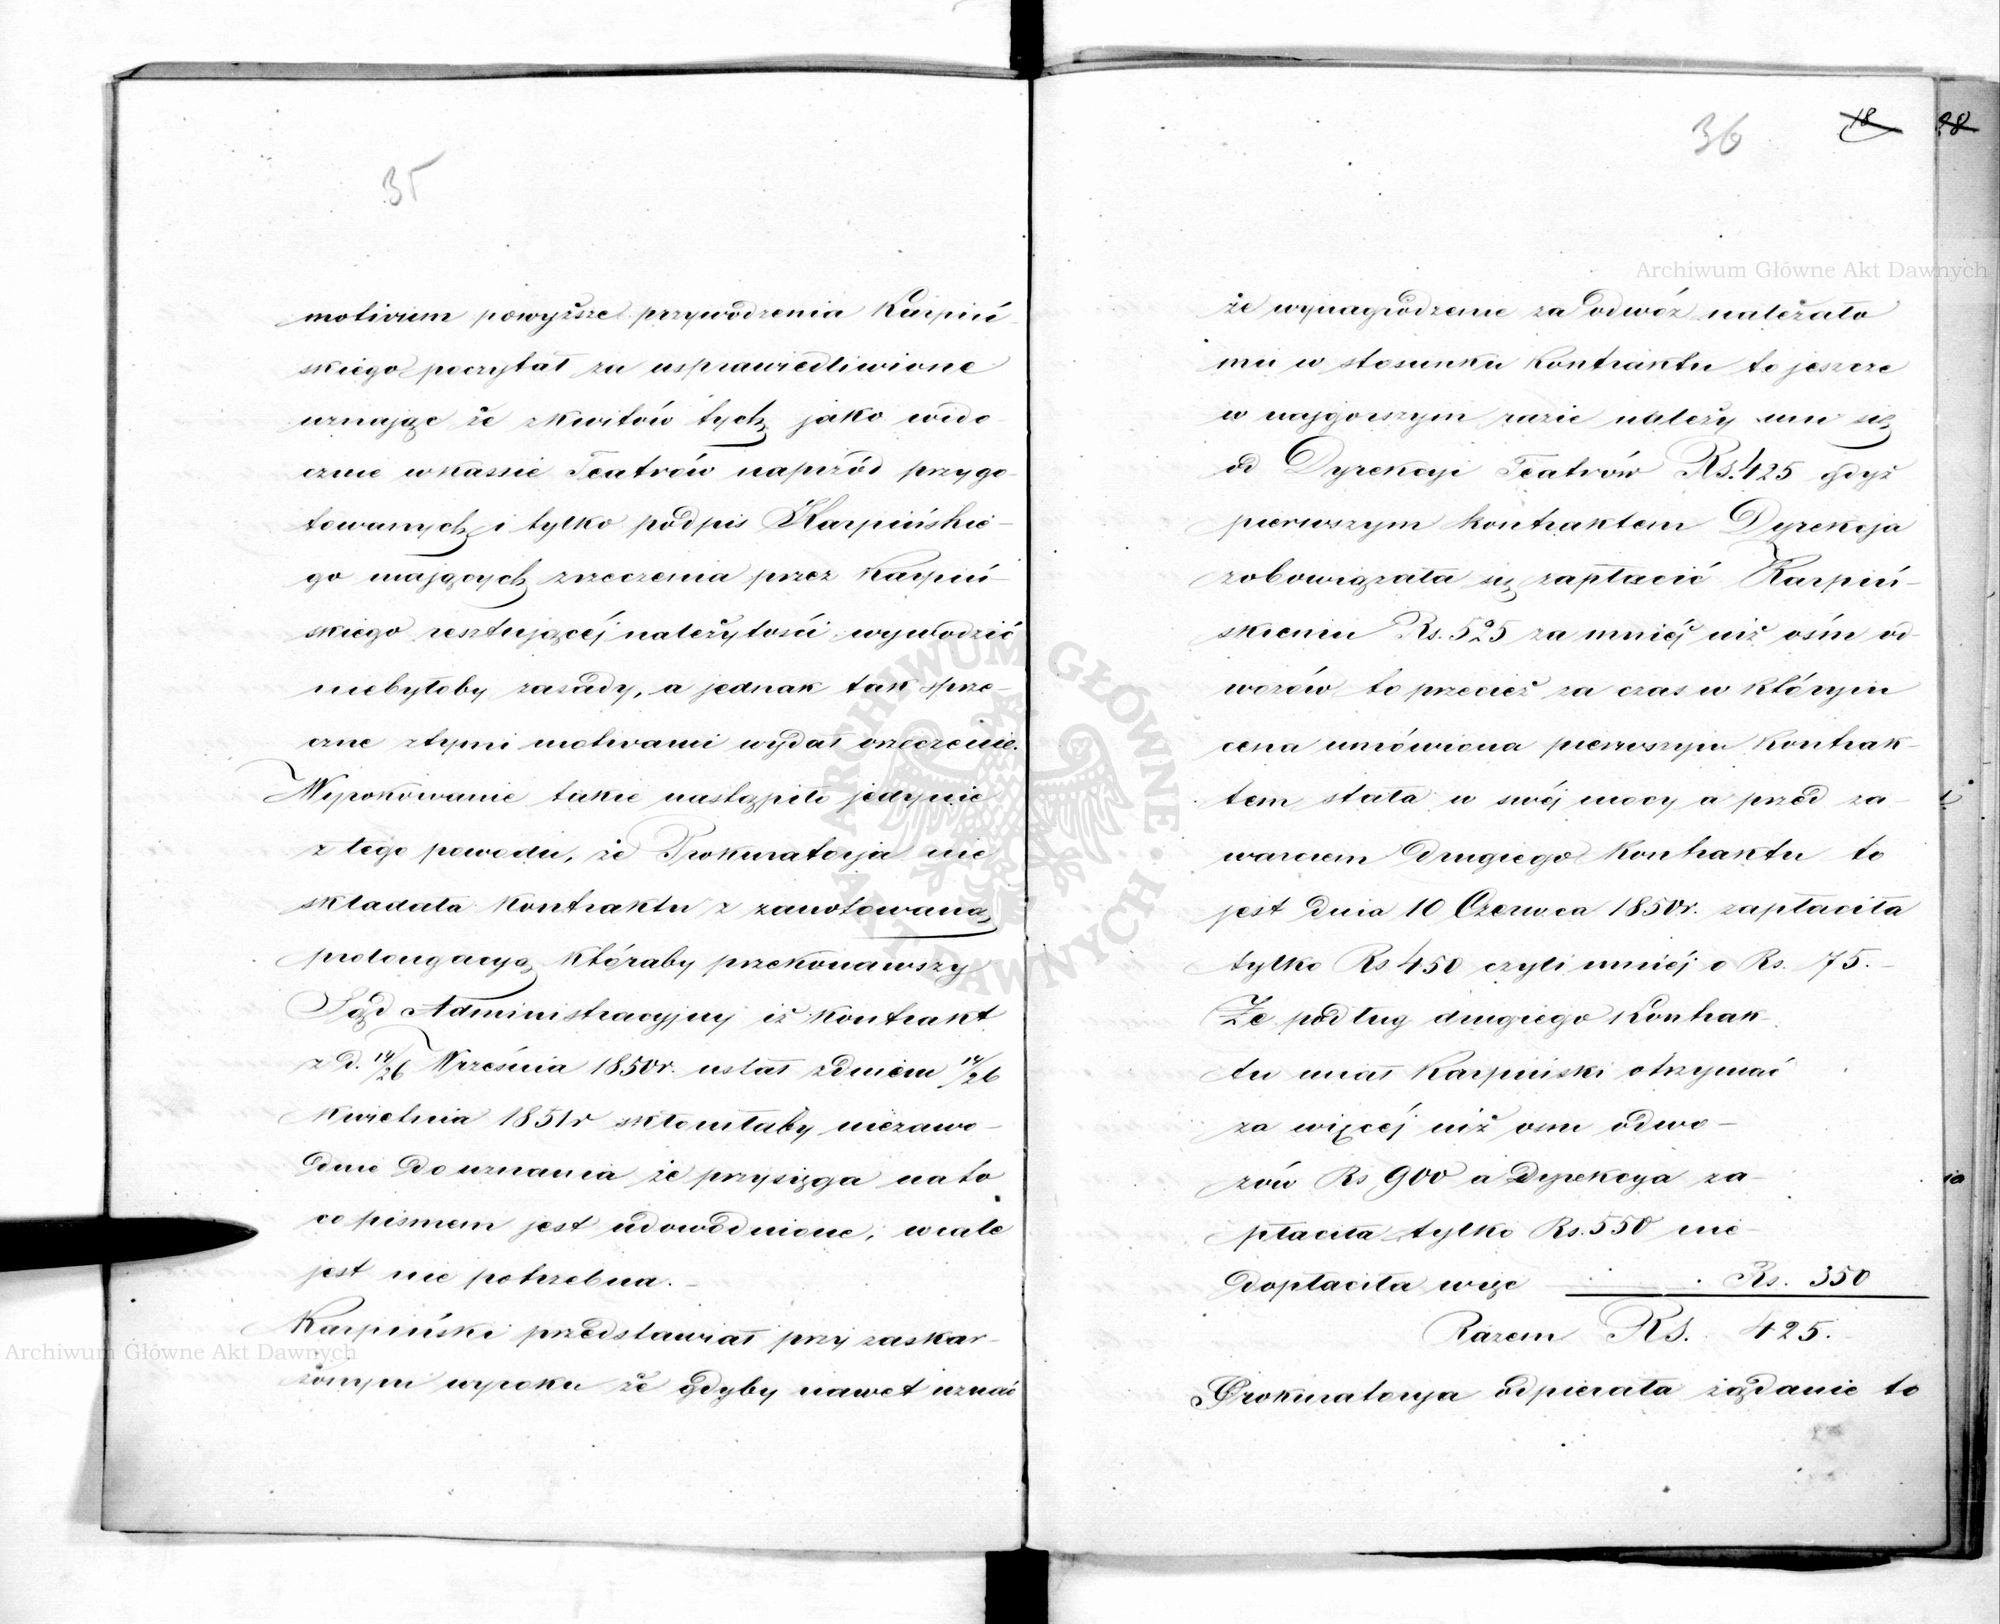 35
motivum powyższe przywodzenia Karpiń-
skiego poczytał za usprawiedliwione
uznając że zkwitów tych jako wido-
cznie wkassie Teatrów naprzód przygo-
towanych i tylko podpis Karpińskie-
go mających zrzeczenia przez Karpiń-
skiego resztującéj należytości wywodzić
niebyłoby zasady, a jednak tak sprze-
czne ztymi motivami wydał orzeczenie.
Wyrokowanie takie nastąpiło jedynie
z tego powodu, że Prokuratorja nie
składała Kontraktu z zanotowaną
prolongacyą, któraby przekonawszy
Sąd Administracyjny iż Kontrakt
z d. 14/26 Września 1850r. ustał zdniem 14/26
Kwietnia 1851r skłoniłaby niezawo-
dnie do uznania że przysięga na to
co pismem jest udowodnione, wcale
jest nie potrzebna.-
Karpiński przedstawiał przy zaskar-
żonym wyroku że gdyby nawet uznać
36
18
28
że wynagrodzenie za odwóz należało
mu w stosunku Kontraktu to jeszcze
w najgorszym razie należy mu się
od Dyrekcji Teatrów Rs. 425 gdyż
pierwszym kontraktem Dyrekcja
zobowiązała się zapłacić Karpiń-
skiemu Rs. 525 za mniéj niż ośm od-
wozów to przecież za czas w którym
cena umówiona pierwszym Kontrak-
tem stała w swéj mocy a przed za-
warciem drugiego Kontraktu to
jest dnia 10 Czerwca 1850r. zapłaciła
tylko Rs 450 czyli mniéj o Rs. 75.-
Że podług drugiego Kontrak-
tu miał Karpiński otrzymać
za więcéj niż osm odwo-
zów Rs 900 a Dyrekcya za-
płaciła tylko Rs. 550 nie-
dopłaciła więc Rs. 350
Razem Rs. 425.
Prokuratorja odpierała żądanie to
Archiwum Główne Akt Dawnych
Archiwum Główne Akt Dawnych
ARCHIWUM GŁÓWNE AKT DAWNYCH